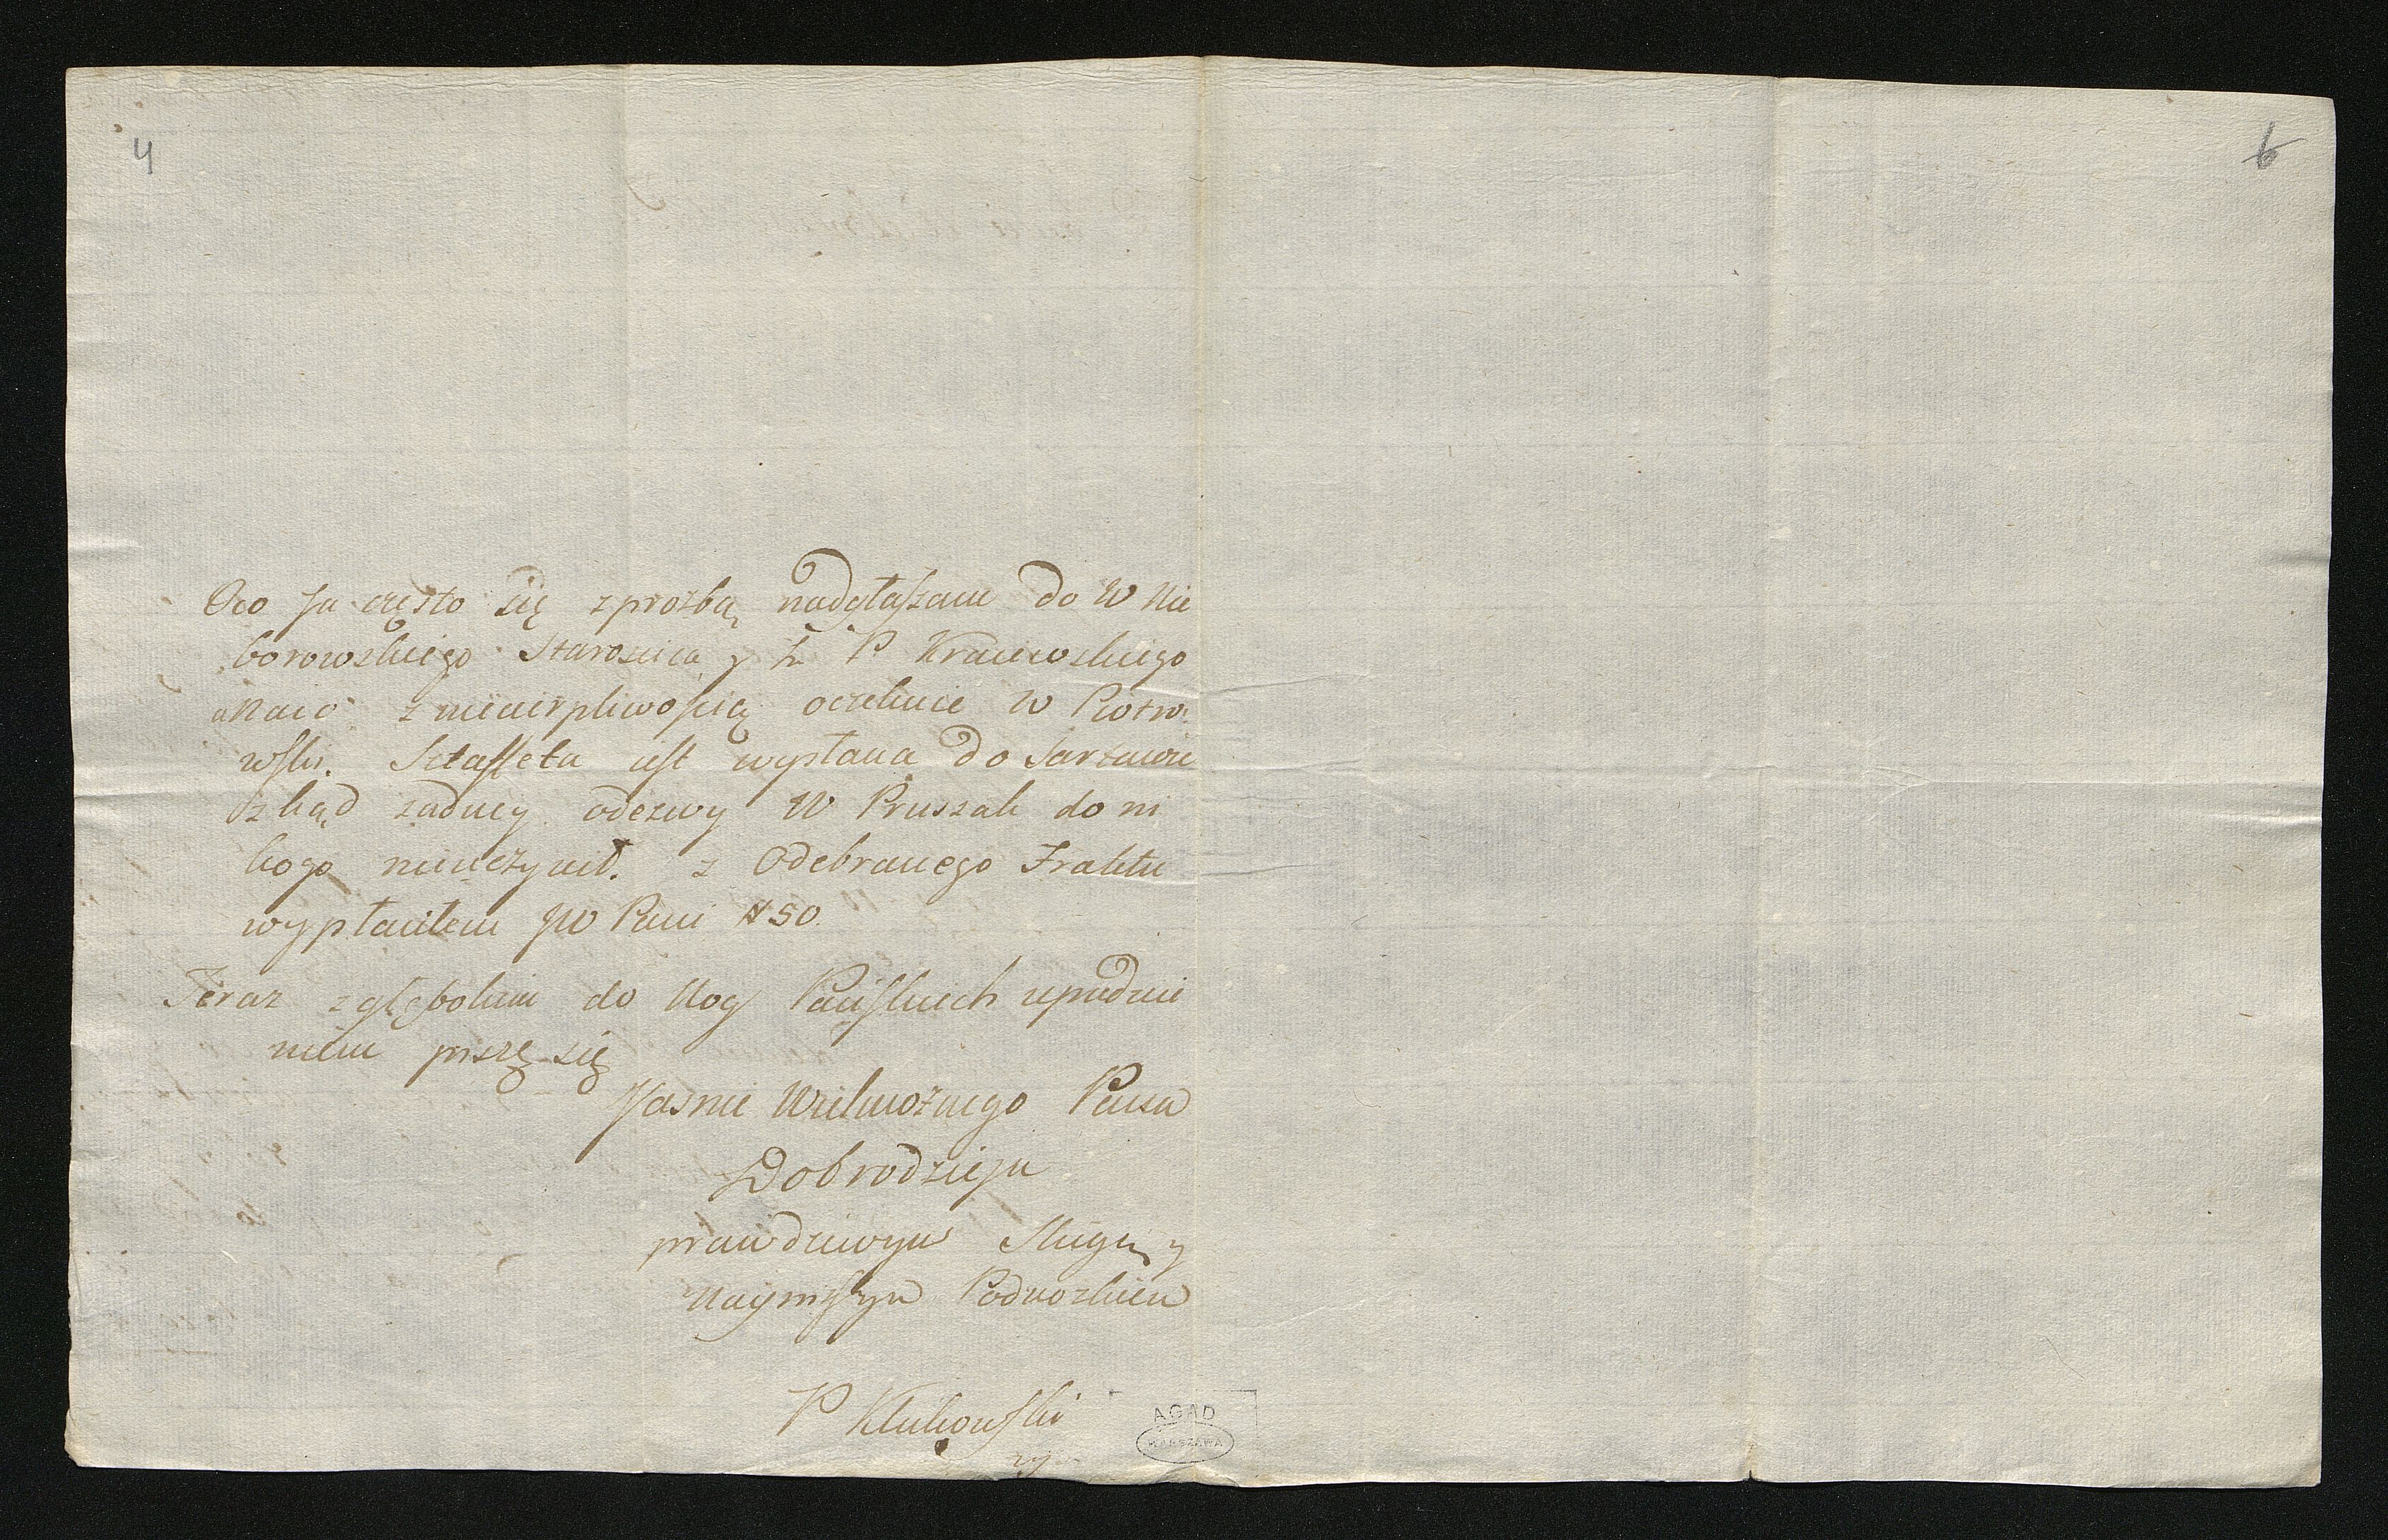 4
6
Oco ja często się z prozbą nadgłaszam do W Nie
borowskiego Staroscica y P Kraiewskiego
z niecierpliwością oczekuie w Piotro
wsku. Sztaffeta iest wysłana do
zkąd zadney odezwy W Pruszak do ni
kogo nieuczynił. z Odebranego Traktu
wypłaciłem JW Pani # 50.
Teraz z głębokim do Nog Pańskich upadnie
niem piszę się
Jasnie Wielmożnego Pana
Dobrodzieja
prawdziwym Sługą y
Nayniższym Podnozkiem
P Klukowski
AGAD
WARSZAWA